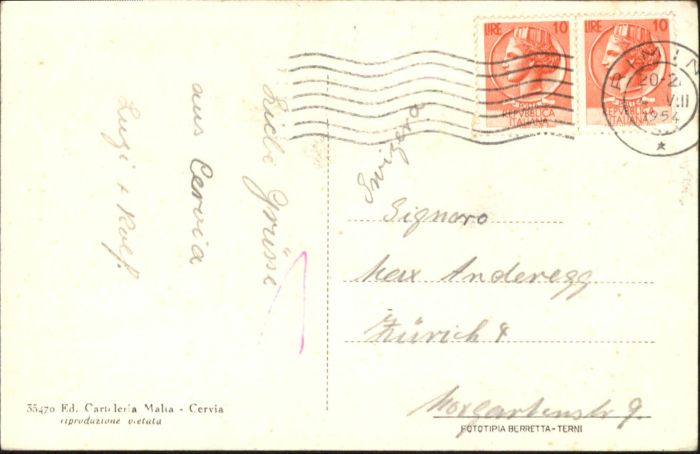 LIRE 10
REPVBBLICA
ITALIANA
LIRE 10
REPVBBLICA
ITALIANA
20-2
VII
1954
Liebe Grüsse
aus Cervia
Luzi + Rolf.
Svizzera
Signoro
Max Anderegg
Zürich 4
Morgartenstr 9.
35470 Ed. Cartoleria Malta - Cervia
riproduzione vietata
FOTOTIPIA BERRETTA - TERNI